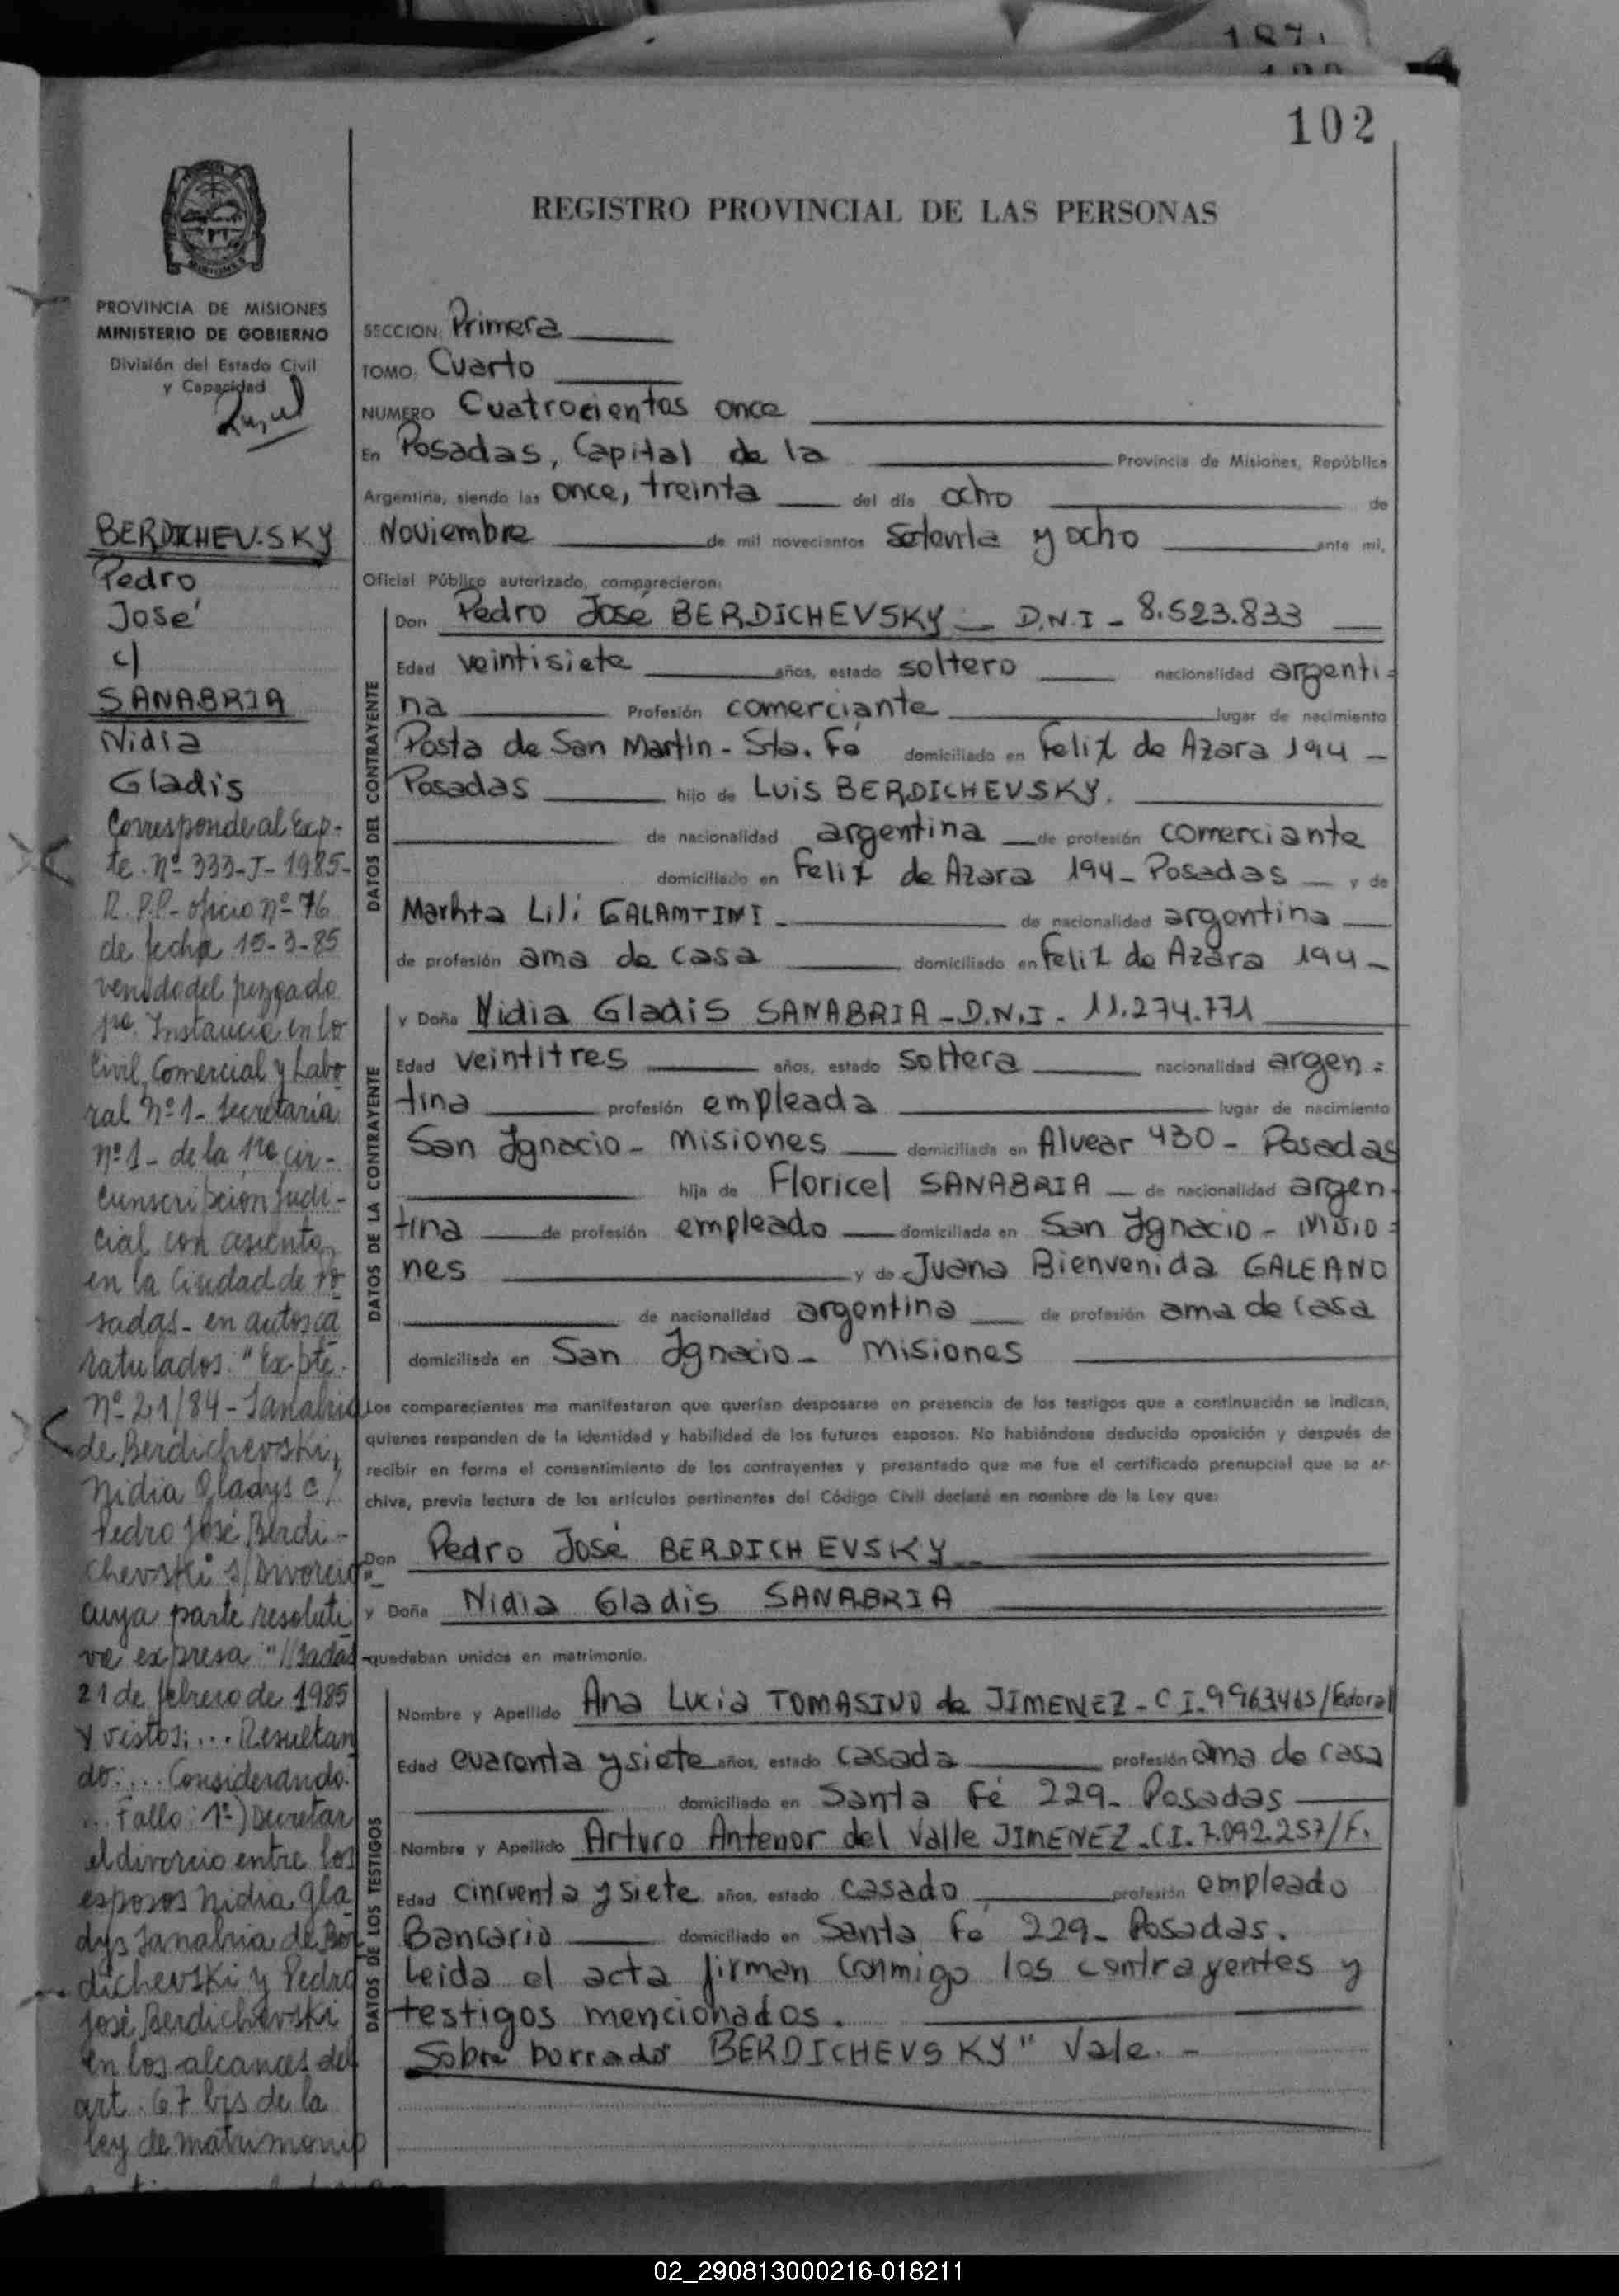 102
REGISTRO PROVINCIAL DE LAS PERSONAS
PROVINCIA DE MISIONES
MINISTERIO DE GOBIERNO
División del Estado Civil
y Capacidad
BERDICHEVSKY
Pedro
José
c/
SANABRIA
Nidia
Gladis
Corresponde al Exp-
te. Nº 333-J-1985-
R.P.P- oficio nº 76
de fecha 15-3-85
venido del juzgado
1ra. Instancia en lo
Civil, Comercial y Labo
ral Nº 1- Secretaria
nº 1- de la 1ra cir-
cunscripción Judi-
cial con asiento
en la Ciudad de Po
sadas- en autos ca
ratulados: "Expte.
Nº 21/84-Sanabria
de Berdichevski,
Nidia Gladys c/
Pedro José Berdi-
chevski s/Divorcio"-
cuya parte resoluti
va expresa "//sadas
21 de febrero de 1985
y vistos:... Resultan
do:... Considerando:
... Fallo: 1º) Decretar
el divorcio entre los
esposos Nidia Gla
dys Sanabria de Ber
dichevski y Pedro
José Berdichevski
en los alcances del
art. 67 bis de la
ley de matrimonio
SECCION: Primera
TOMO: Cuarto
NUMERO Cuatrocientos once
En Posadas, Capital de la Provincia de Misiones, República
Argentina, siendo las once, treinta del día ocho de
Noviembre de mil novecientos setenta y ocho ante mi,
Oficial Público autorizado, comparecieron:
DATOS DEL CONTRAYENTE
Don Pedro José BERDICHEVSKY - D.N.I - 8.523.833
Edad veintisiete años, estado soltero nacionalidad argenti=
na Profesión comerciante lugar de nacimiento
Posta de San Martin - Sta. Fé domiciliado en Felix de Azara 194 -
Posadas hijo de Luis BERDICHEVSKY.
de nacionalidad argentina de profesión comerciante
domiciliado en Felix de Azara 194 - Posadas y de
Marhta Lili GALAMTINI - de nacionalidad argentina
de profesión ama de casa domiciliado en Felix de Azara 194 -
DATOS DE LA CONTRAYENTE
y Doña Nidia Gladis SANABRIA - D.N.I - 11.274.771
Edad veintitres años, estado soltera nacionalidad argen=
tina profesión empleada lugar de nacimiento
San Ignacio - Misiones domiciliada en Alvear 430 - Posadas
hija de Floricel SANABRIA de nacionalidad argen-
tina de profesión empleado domiciliada en San Ignacio - Misio=
nes y de Juana Bienvenida GALEANO
de nacionalidad argentina de profesión ama de casa
domiciliada en San Ignacio - Misiones
Los comparecientes me manifestaron que querían desposarse en presencia de los testigos que a continuación se indican,
quienes responden de la identidad y habilidad de los futuros esposos. No habiéndose deducido oposición y después de
recibir en forma el consentimiento de los contrayentes y presentado que me fue el certificado prenupcial que se ar-
chiva, previa lectura de los artículos pertinentes del Código Civil declaré en nombre de la Ley que:
Don Pedro José BERDICHEVSKY
y Doña Nidia Gladis SANABRIA
quedaban unidos en matrimonio.
DATOS DE LOS TESTIGOS
Nombre y Apellido Ana Lucia TOMASINO de JIMENEZ - C I. 9963465/Federal
Edad cuarenta y siete años, estado casada profesión ama de casa
domiciliado en Santa Fé 229- Posadas
Nombre y Apellido Arturo Antenor del Valle JIMENEZ - C.I. 7.092.257/F.
Edad cincuenta y siete años, estado casado profesión empleado
Bancario domiciliado en Santa Fé 229- Posadas.
leida el acta firman conmigo los contrayentes y
testigos mencionados.
Sobre borrado BERDICHEVSKY" Vale. -
02_290813000216-018211